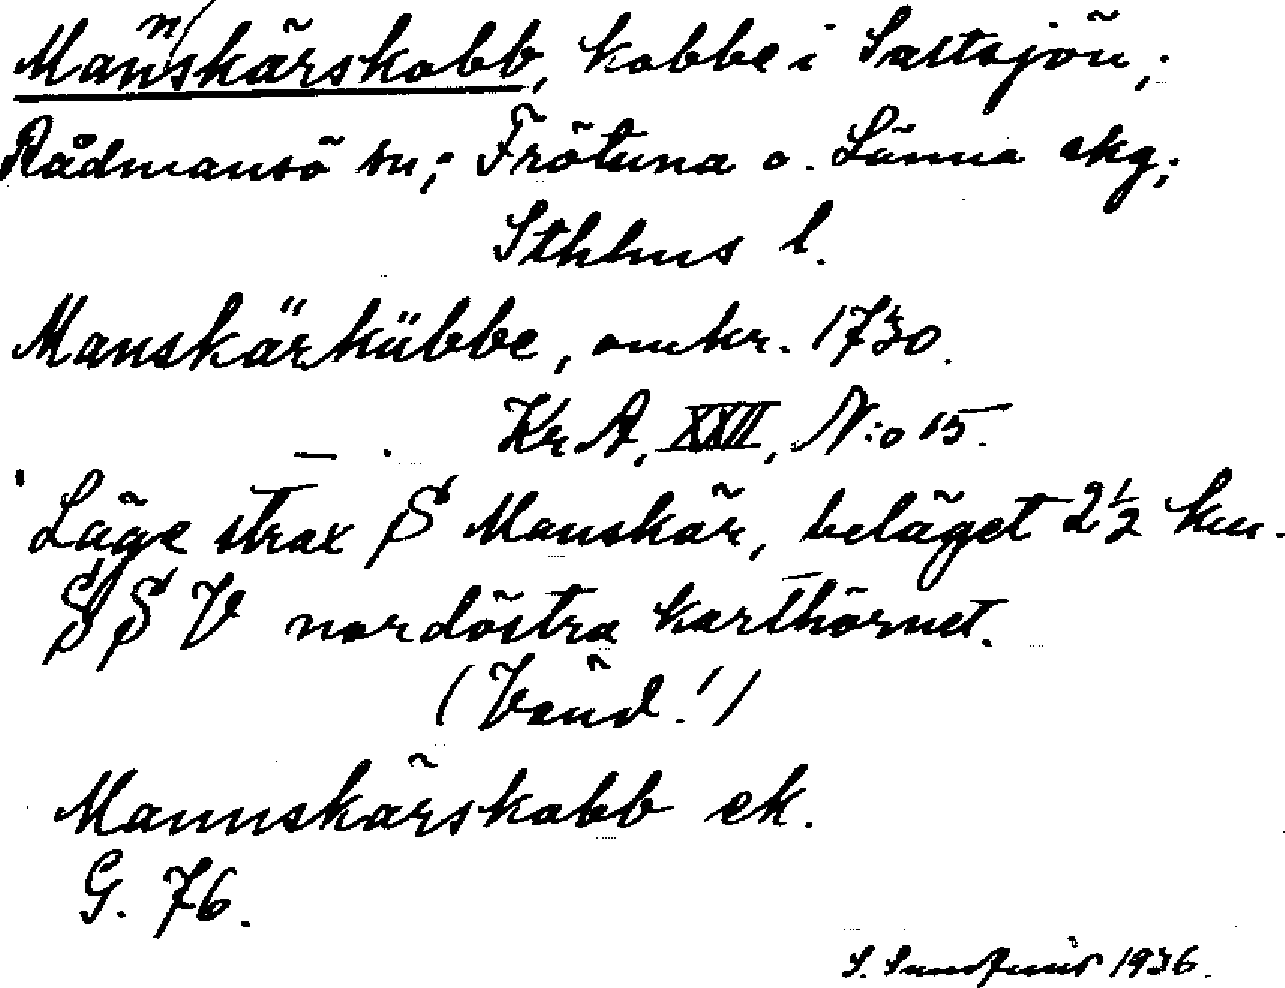 Mannskärskobb, kobbe i Saltsjön;
Rådmansö sn; Frötuna o. Länna skg;
Sthlms l.
Manskärkübbe, omkr. 1730.
Kr A, XXII, N:o 15.
Läge strax S Manskär, beläget 2½ km.
S S V nordöstra karthörnet.
(Vänd!)
Mannskärskobb ek.
G. 76.
S. 1936.